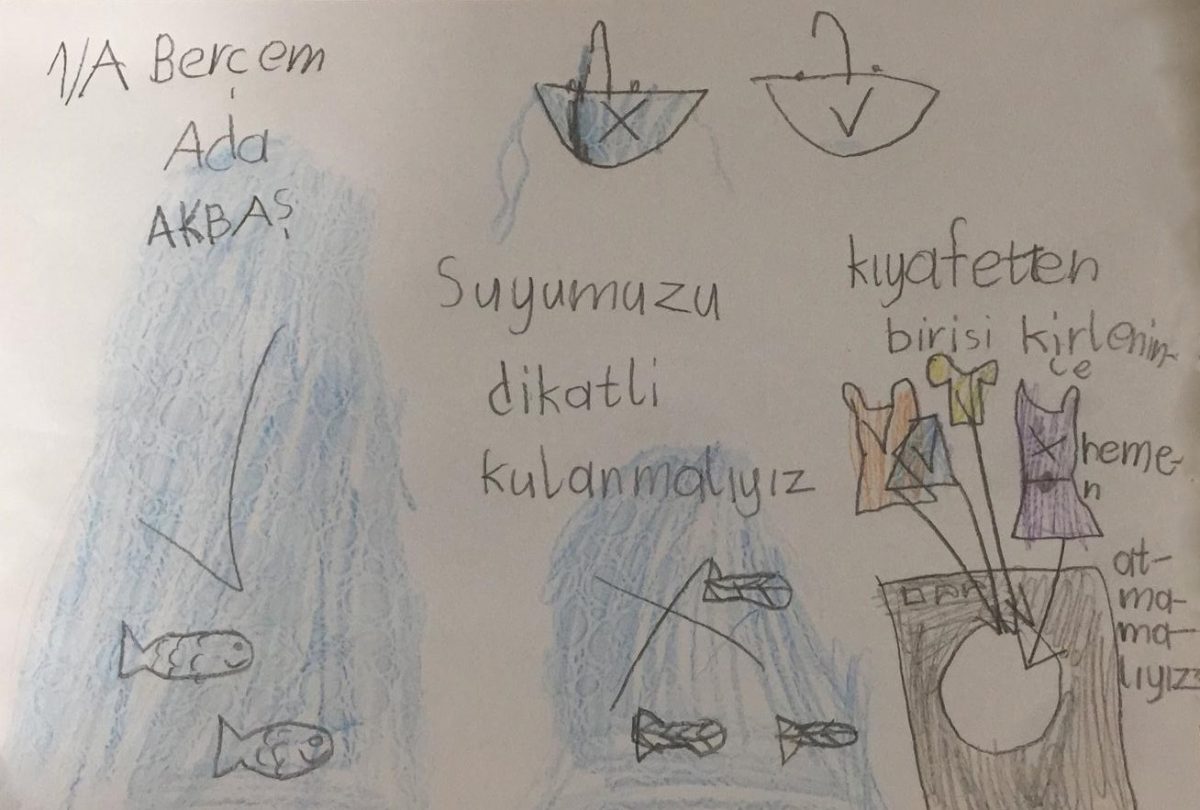 1/A Berçem
Ada
AKBAŞ
Suyumuzu
dikatli
kulanmalıyız
kıyafetten
birisi kirlenin-
ce
heme-
n
at-
ma-
ma-
lıyız